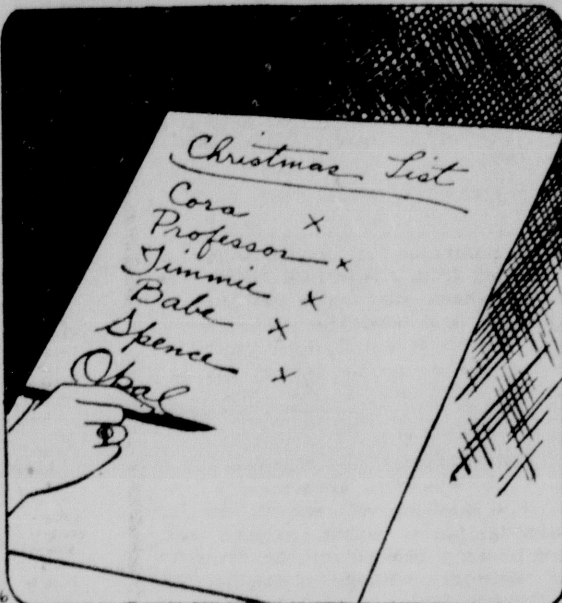 Christmas List
Cora x
Professor x
Jimmie x
Babe x
Spence x
Opal